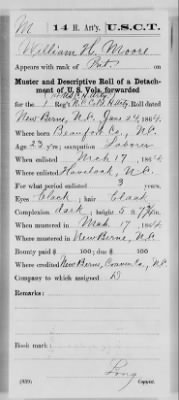 M 14 H. Art'y. U.S.C.T.
William H. Moore
Appears with rank of Pvt on
Muster and Descriptive Roll of a Detach-
ment of U. S. Vols. forwarded
for the 1 Reg't N.C. Col. H. Arty. Roll dated
New Berne, N.C. June 24, 1864.
Where born Beaufort Co., N.C.
Age 23 y'rs; occupation Laborer
When enlisted Mch 17, 1864.
Where enlisted Havelock, N.C.
For what period enlisted 3 years.
Eyes black; hair black
Complexion dark; height 5 ft. 7½ in.
When mustered in Mch 17, 1864.
Where mustered in New Berne, N.C.
Bounty paid $ 100; due $ 100
Where credited New Berne, Craven Co., N.C.
Company to which assigned D
Remarks:
Book mark:
Long
(339) Copyist.